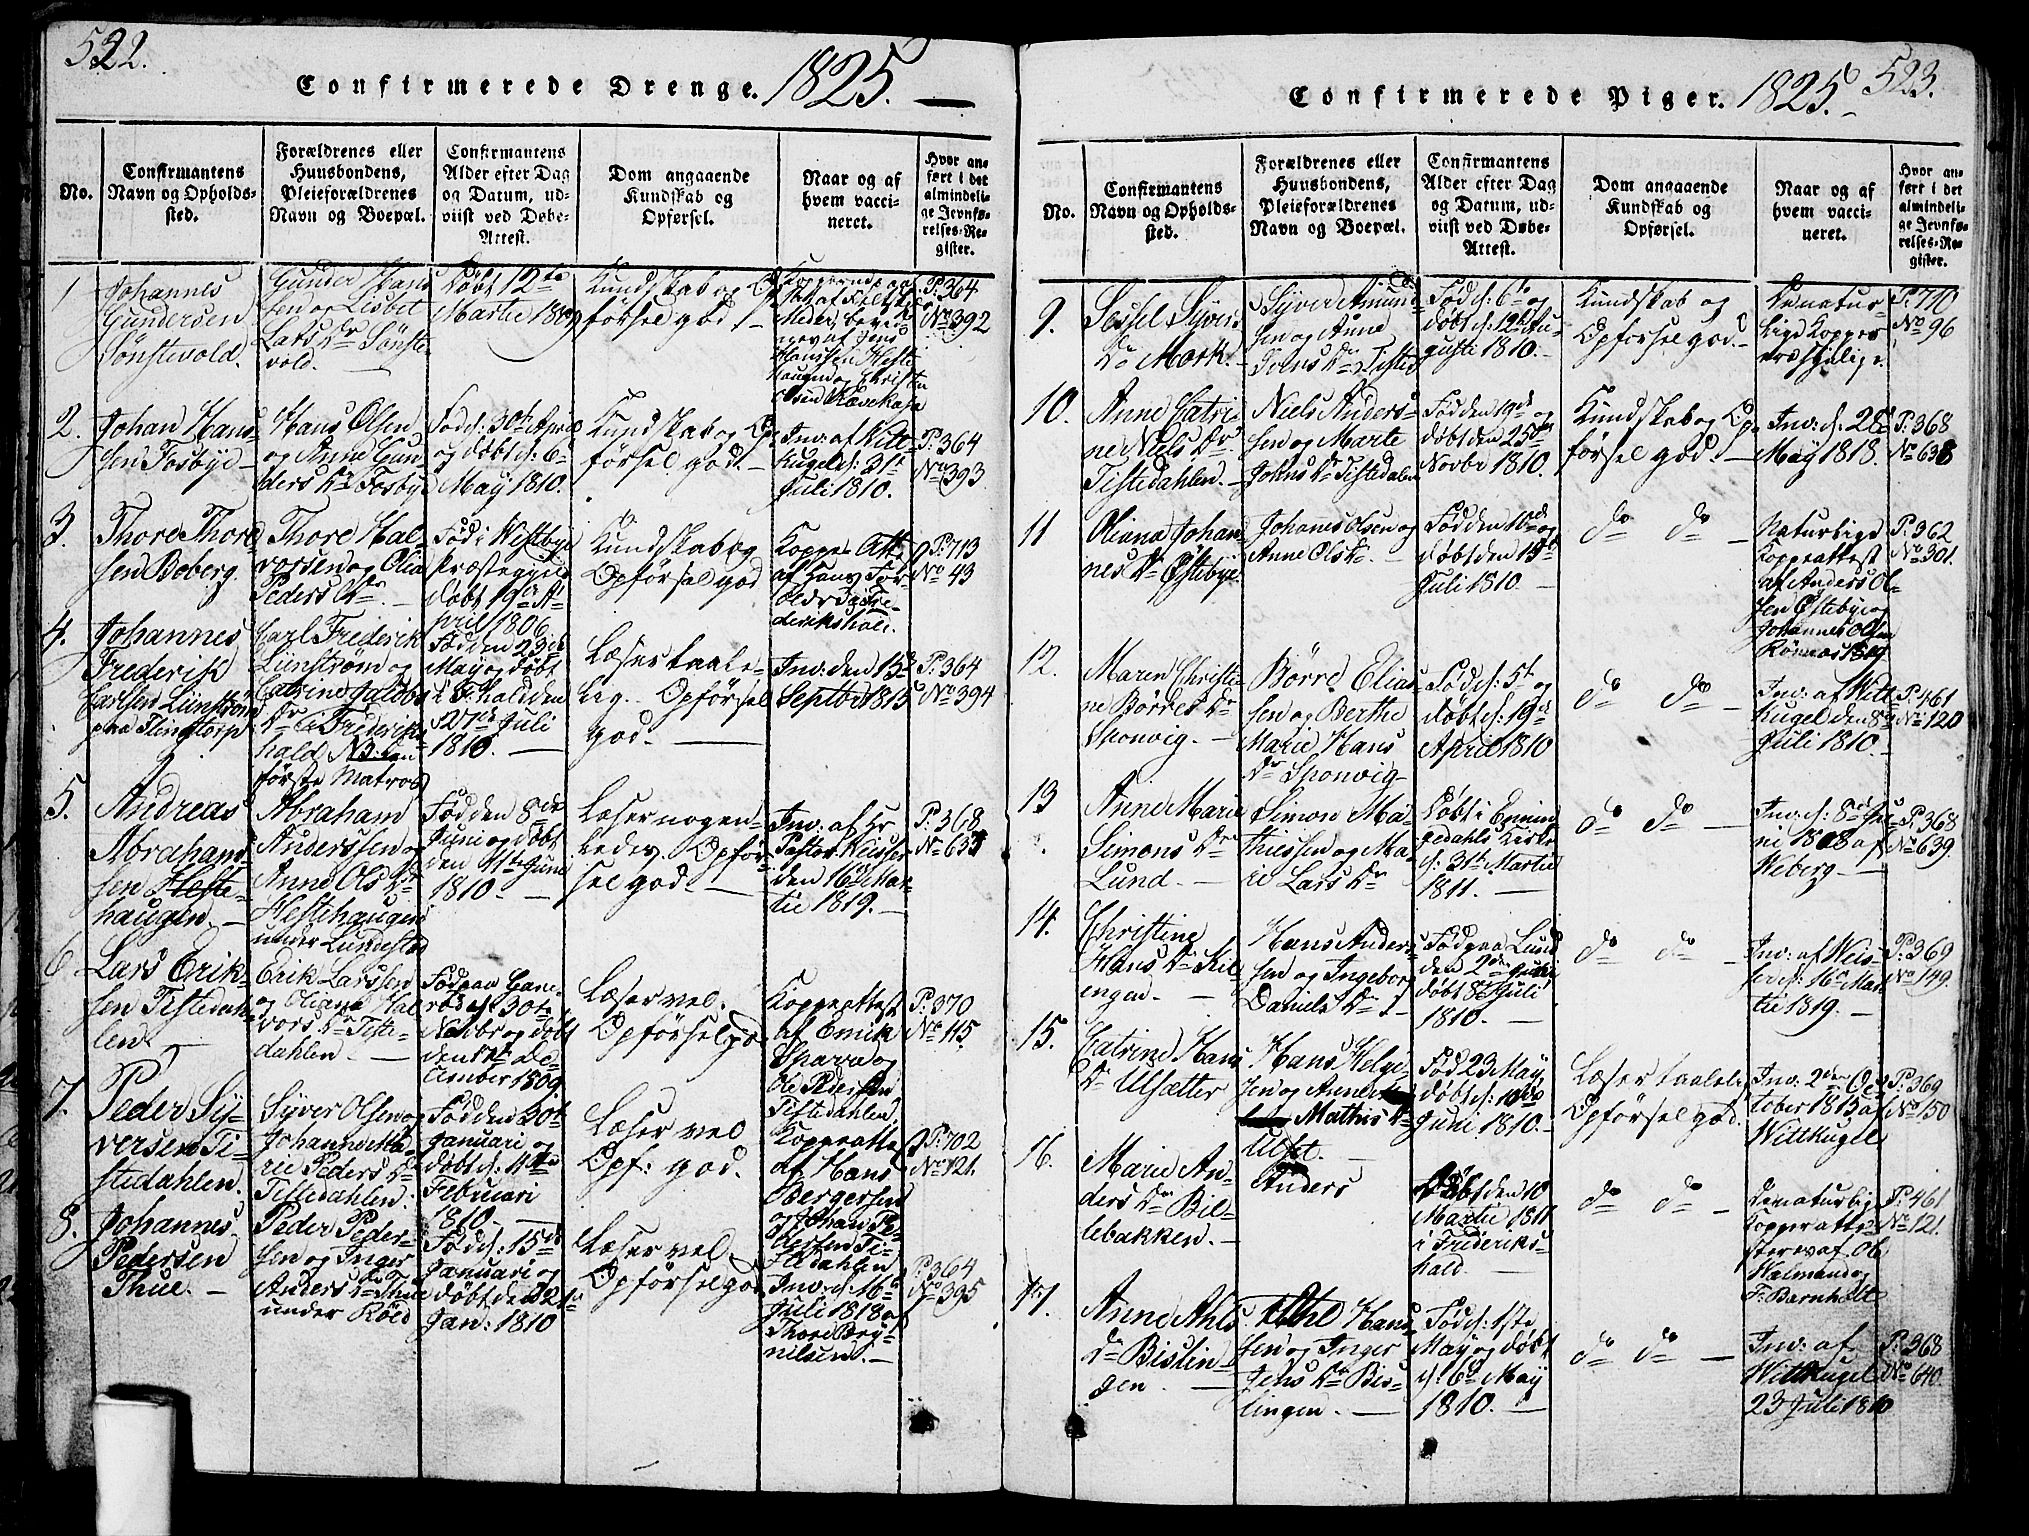 522.
Confirmerede Drenge. 1825. —
No.
Confirmantens
Navn og Opholds-
sted.
Forældrenes eller
Huusbondens,
Pleieforældrenes
Navn og Boepæl.
Confirmantens
Alder efter Dag
og Datum, ud-
viist ved Døbe-
Attest.
Dom angaaende
Kundskab og
Opførsel.
Naar og af
hvem vacci-
neret.
Hvor an-
ført i det
almindeli-
ge Jevnfø-
relses-Re-
gister.
1
Johannes
Gundersen
Sönstevold.
Gunder Hans
sen og Lisbet
Lars Dr Sönste-
vold.
Døbt 12te
Martii 1809
Kundskab og Op-
førsel god
P: 364
No 392
2.
Johan Hans-
sen Fosbye
Hans Olsen
og Anne Gun-
ders Dr Fosby
Föd d: 30te April
og døbt d: 6te
May 1810.
Kundskab og Op-
førsel god. —
Inv: af Witt-
kugel d: 31te
Juli 1810.
P: 364
No 393
3.
Thore Thore
sen Boberg.
Thore Hal
vorsen og Olia
Peders Dr. —
Föd i Westbye
Præstegield
døbt 19de A-
pril 1806
Kundskab og
Opførsel god
Koppe Att.
af Hans Tor
P: 713
No 43
4.
Johannes
Frederik
Carlsen Lünström
paa Flingtorp
Carl Frederik
Lünstrøm og
Catrine Jakobs
Dr i Frederiks
hald NB. den
første Matros
Fød den 23de
May og døbt
i F.hald den
27de Juli
1810. —
Læser taale-
lig. Opførsel
god. —
Inv: den 15de
Septbr 1815
P: 364
No 394
5.
Andreas
Abraham-
sen Heste-
haugen. —
Abraham
Anderssen og
Anne Ols Dr
Hestehaugen
under Lundestad
Fød den 8de
Juni og døbt
den 11te Juni
1810. —
Læser nogen-
ledes. Opfør-
sel god. —
Inv: af Hr
Pastor
den 16de Mar-
tii 1819. —
P: 368
No 635
6
Lars Erik-
sen Tistedah-
len. —
Erik Larssen
og Oliana Hal
vors Dr Tiste-
dahlen. —
Fød paa
d: 30te
Novbr og døbt
den 1te De-
cember 1809
Læser vel.
Opførsel go
Koppeattest
af Emik
Spara og
Ole Pedersen
Tistedahlen
P: 370
No 115.
7.
Peder Sy-
versen Ti-
stedahlen.
Syver Olsen og
Johanne Ma-
rie Peders Dr
Tistedahlen.
Fød den 20de
Januari og
døbt d: 11te
Februari
1810. —
Læser vel
Opf: god.
Koppeatte
af Hans
Bergersen
og Johan Pe-
dersen Ti-
stedahlen
P: 702
No 121.
8.
Johannes
Pedersen
Thue. —
Peder Peder-
sen og Inger
Anders Dr Thue
under Röd
Fød d: 15de
Januari og
døbt den 21de
Jan: 1810
Læser vel.
Opførsel god
Inv: d:
Juli 1818 af
Thore Bry-
nilsen. —
P: 364
No 395
523.
Confirmerede Piger. 1825. —
No.
Confirmantens
Navn og Opholds-
sted.
Forældrenes eller
Huusbondens,
Pleieforældrenes
Navn og Boepæl.
Confirmantens
Alder efter Dag
og Datum, ud-
viist ved Døbe-
Attest.
Dom angaaende
Kundskab og
Opførsel.
Naar og af
hvem vacci-
neret.
Hvor an-
ført i det
almindeli-
ge Jevnfø-
relses-Re-
gister.
9.
Sessel Syvers
Dr Mork. —
Syver Amund
sen og Anne
Ivers Dr Tisted
Fød d: 6te og
døbt d: 12te Au-
gusti 1810. —
Kundskab og
Opførsel god. —
De natur-
lige Kopper
P: 710
No 96
10.
Anne Catri
ne Niels Dr
Tistedahlen. —
Niels Anders-
sen og Marte
Johns Dr Tistedalen
Fød den 19de og
døbt den 25de
Novbr 1810.
Kundskab og Op-
førsel god. —
Inv: d: 28de
May 1818. —
P: 368
No 638
11
Oliana Johan
nes Dr Østebye
Johanes Olsen og
Anne Ols Dr. —
Fød den 10de og
døbt den 15de
Juli 1810.
do do
Naturlige
Koppeattest
af Anders Ol-
sen Østebye og
Johannes Olsen
P: 362
No 301.
12.
Maren Christi-
ne Börres Dr
Sponvig. —
Börre Elias
sen og Berthe
Marie Hans
Dr Sponvig —
Fød d: 5te og
døbt d: 19de
April 1810
do do —
Inv: af Witt
kugel den 8de
Juli 1810. —
P: 461
No 120
13
Anne Marie
Simons Dr
Lund. —
Simon Ma-
thiessen og Ma-
rie Lars Dr
Døbt i Enning
dahls Kirke
d: 31te Martii
1811. —
do do —
Inv: d: 8de Ju-
ni 1818 af
Weberg —
P: 368
No 639.
14.
Christine
Hans Dr Kil
engen. —
Hans Anders-
sen og Ingeborg
Daniels Dr —
Fød paa Lund
den 2den Juli
døbt 8de Juli
1810. —
do do —
Inv: af
d: 16de Mar-
tii 1819. —
P: 369
No 149.
15.
Catrine Hans
Dr Ulsætter
Hans Helge-
sen og Anne
Mathis Dr
Ulset. —
Fød 23 May
døbt d: 10de
Juni 1810. —
Læser taalelig
Opførsel god.
Inv: 2den Oc-
tober 1815 af
Wittkugel
P: 369
No 150
16.
Marie An-
ders Dr Bil-
lebakken. —
Anders
Døbt den 10
Martii 1811
i Frederiks-
hald —
do do —
De naturlige
Koppe atte-
ster af Ob
Walmand og
F: Barnholt
P: 461
No 121.
17.
Anne Ahls
Dr Bislin-
gen. —
Hans
sen og Inger
Jens Dr Bis-
lingen. —
Fød d: 1ste
May og døbt
d: 6te May
1810. —
do do —
Inv: af
Wittkugel
23 Juli 1810
P: 368
No 640.